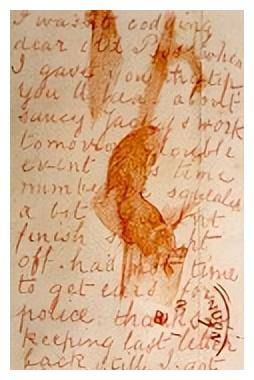 I wasnt codding
dear old Boss when
I gave you the tip
you'll hear about
saucy Jacky s work
tomorrow double
event this time
number one squealed
a bit
finish
off. had not time
to get ears for
police thanks
keeping last letter
back till I got